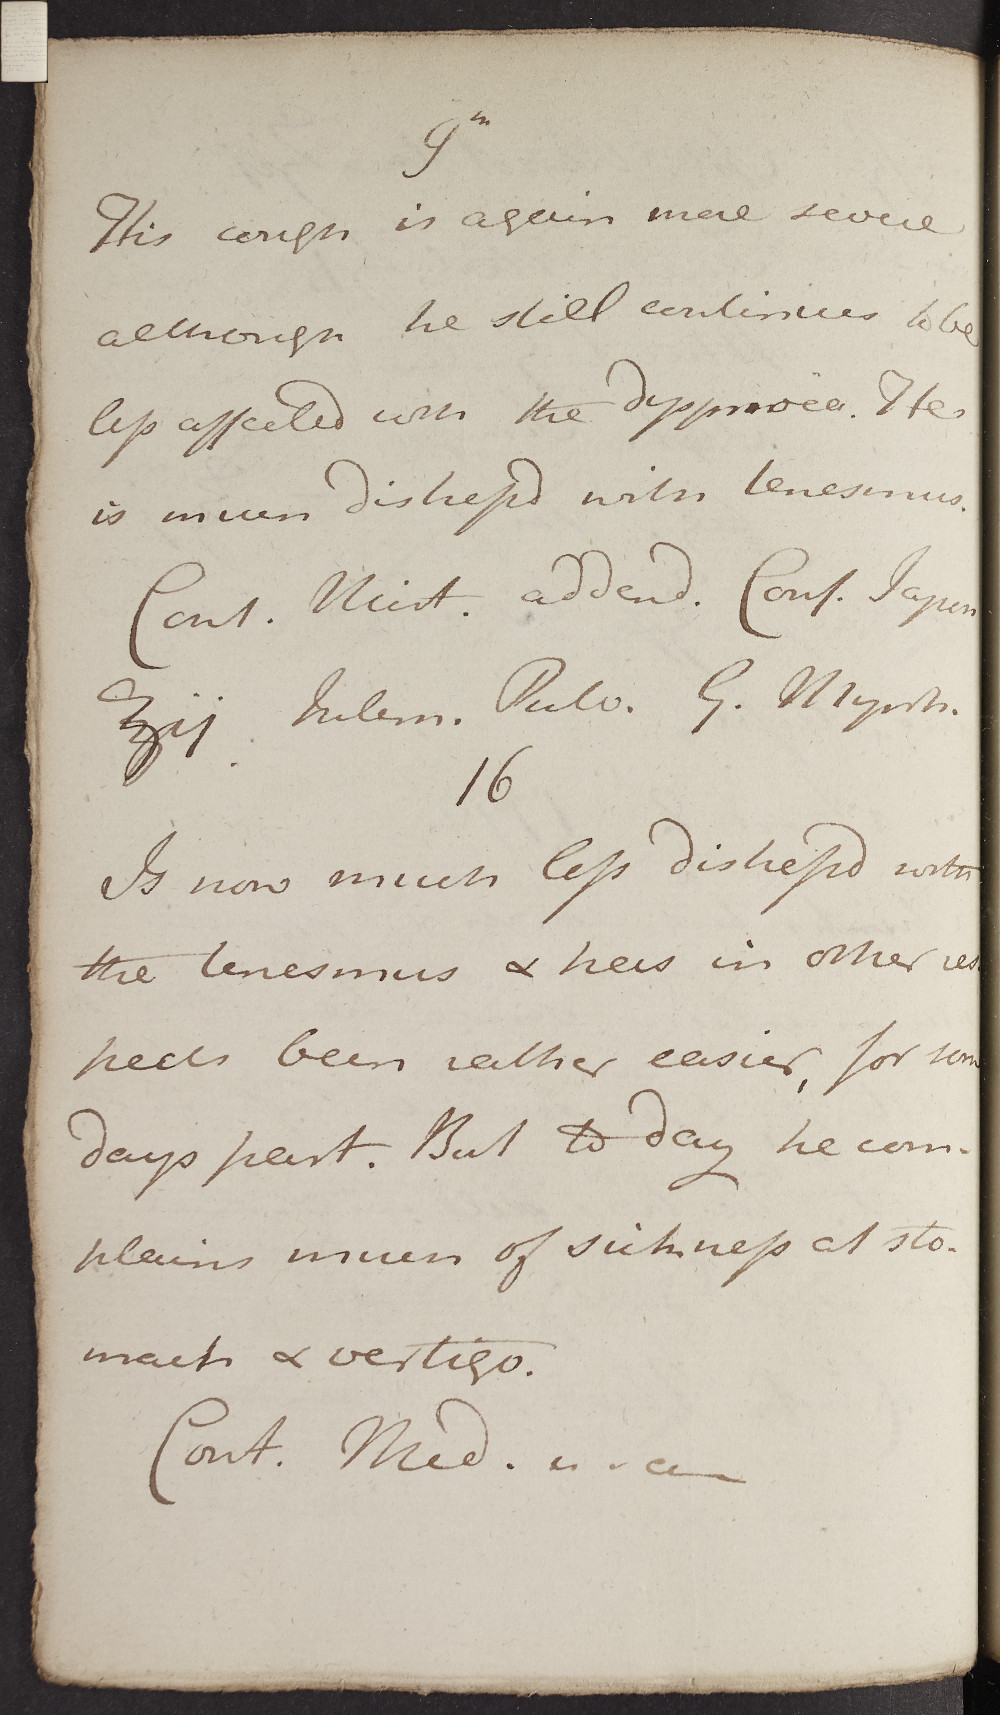 9th
His cough is again more severe
although he still continues to be
less affected with the dyspnoëa. He
is much distressd with tenesmus.
Cont. Mist. addend. Conf. Japon
ʒij Pulv. G. Myrrh.
16
Is now much less distressd with
the tenesmus & has in other res
pects been rather easier, for som
days past. But to day he com-
plains much of sickness at sto-
mach & vertigo.
Cont. Med.